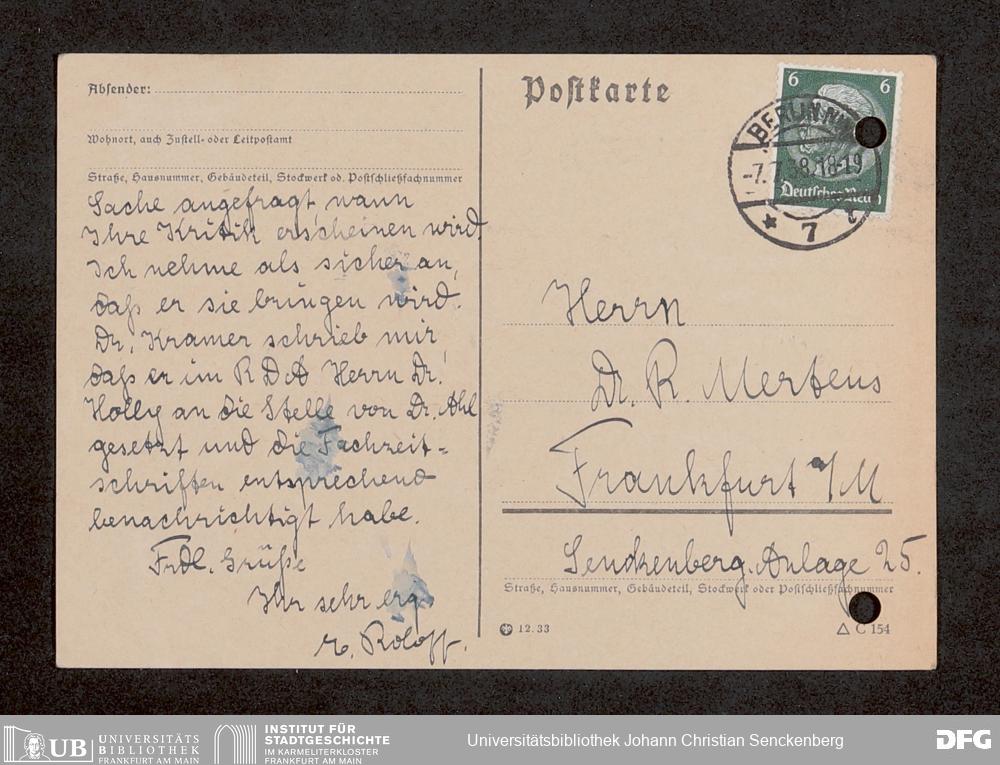 Absender:
Wohnort, auch Zustell- oder Leitpostamt
Straße, Hausnummer, Gebäudeteil, Stockwerk od. Postschließfachnummer
Sache angefragt, wann
Ihre Kritik erscheinen wird.
Ich nehme als sicher an,
daß er sie bringen wird.
Dr. Kramer schrieb mir,
daß er im R D A Herrn Dr.
Holly an die Stelle von Dr. Ahl
gesetzt und die Fachzeit=
schriften entsprechend
benachrichtigt habe.
Frdl. Grüße
Ihr sehr erg.
v. Roloff.
Postkarte
6 6
BERLIN NW
-7.7. 8.18-19
Deutsches Reich
* 7 t
Herrn
Dr. R. Mertens
Frankfurt a/M
Senckenberg. Anlage 25.
Straße, Hausnummer, Gebäudeteil, Stockwerk oder Postschließfachnummer
12.33
C 154
UB
UNIVERSITÄTS
BIBLIOTHEK
FRANKFURT AM MAIN
INSTITUT FÜR
STADTGESCHICHTE
IM KARMELITERKLOSTER
FRANKFURT AM MAIN
Universitätsbibliothek Johann Christian Senckenberg
DFG